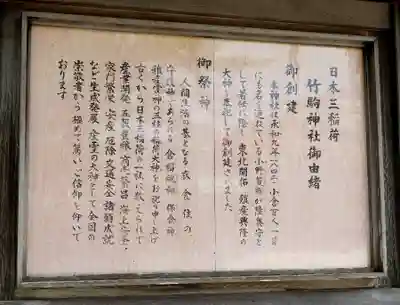 日本三稲荷
竹駒神社御由緒
御創建
本神社は承和九年(八四二)小倉百人一首
にも名を連ねている小野篁卿が陸奥守と
して着任に際し 東北開拓 殖産興隆の
大神を奉祀して御創建されました
御祭神
人間生活の基となる衣 食 住の
守護神であられる 倉稲魂神 保食神
稚産霊神の三柱の稲荷大神をお祀り申し上げ
古くから日本三稲荷の一社に数えられて
産業開発 五穀豊穣 商売繁昌 海上安全
家門繁栄 安産 厄除 交通安全 諸願成就
など生成発展 産霊の大神として全国の
崇敬者から極めて篤いご信仰を仰いで
おります